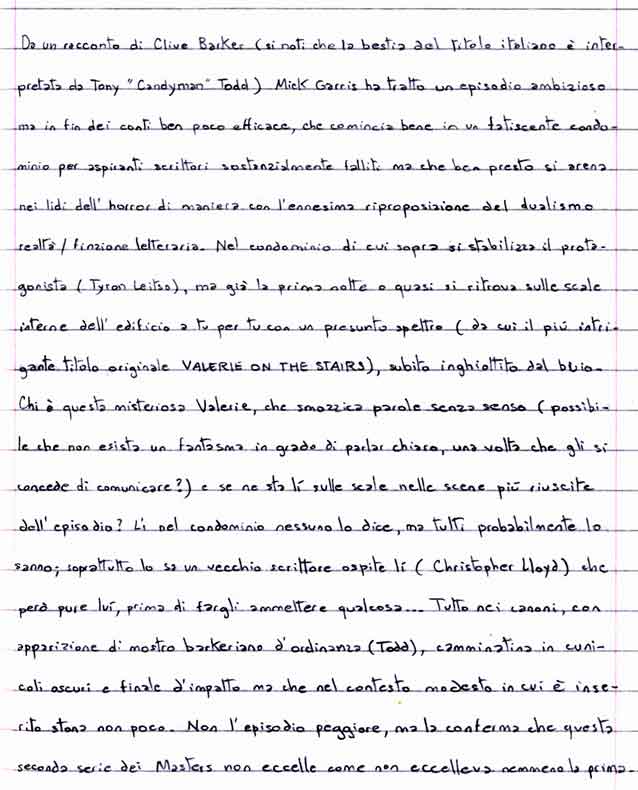 Da un racconto di Clive Barker (si noti che la bestia del titolo italiano è inter-
pretata da Tony "Candyman" Todd) Mick Garris ha tratto un episodio ambizioso
ma in fin dei conti ben poco efficace, che comincia bene in un fatiscente condo-
minio per aspiranti scrittori sostanzialmente falliti ma che ben presto si arena
nei lidi dell'horror di maniera con l'ennesima riproposizione del dualismo
realtà/finzione letteraria. Nel condominio di cui sopra si stabilizza il prota-
gonista (Tyron Leitso), ma già la prima notte o quasi si ritrova sulle scale
interne dell'edificio a tu per tu con un presunto spettro (da cui il più intri-
gante titolo originale VALERIE ON THE STAIRS), subito inghiottito dal buio.
Chi è questa misteriosa Valerie, che smozzica parole senza senso (possibi-
le che non esista un fantasma in grado di parlar chiaro, una volta che gli si
concede di comunicare?) e se ne sta lì sulle scale nelle scene più riuscite
dell'episodio? Lì nel condominio nessuno lo dice, ma tutti probabilmente lo
sanno; soprattutto lo sa un vecchio scrittore ospite lì (Christopher Lloyd) che
però pure lui, prima di fargli ammettere qualcosa... Tutto nei canoni, con
apparizione di mostro barkeriano d'ordinanza (Todd), camminatina in cuni-
coli oscuri e finale d'impatto ma che nel contesto modesto in cui è inse-
rito stona non poco. Non l'episodio peggiore, ma la conferma che questa
seconda serie dei Masters non eccelle come non eccelleva nemmeno la prima.